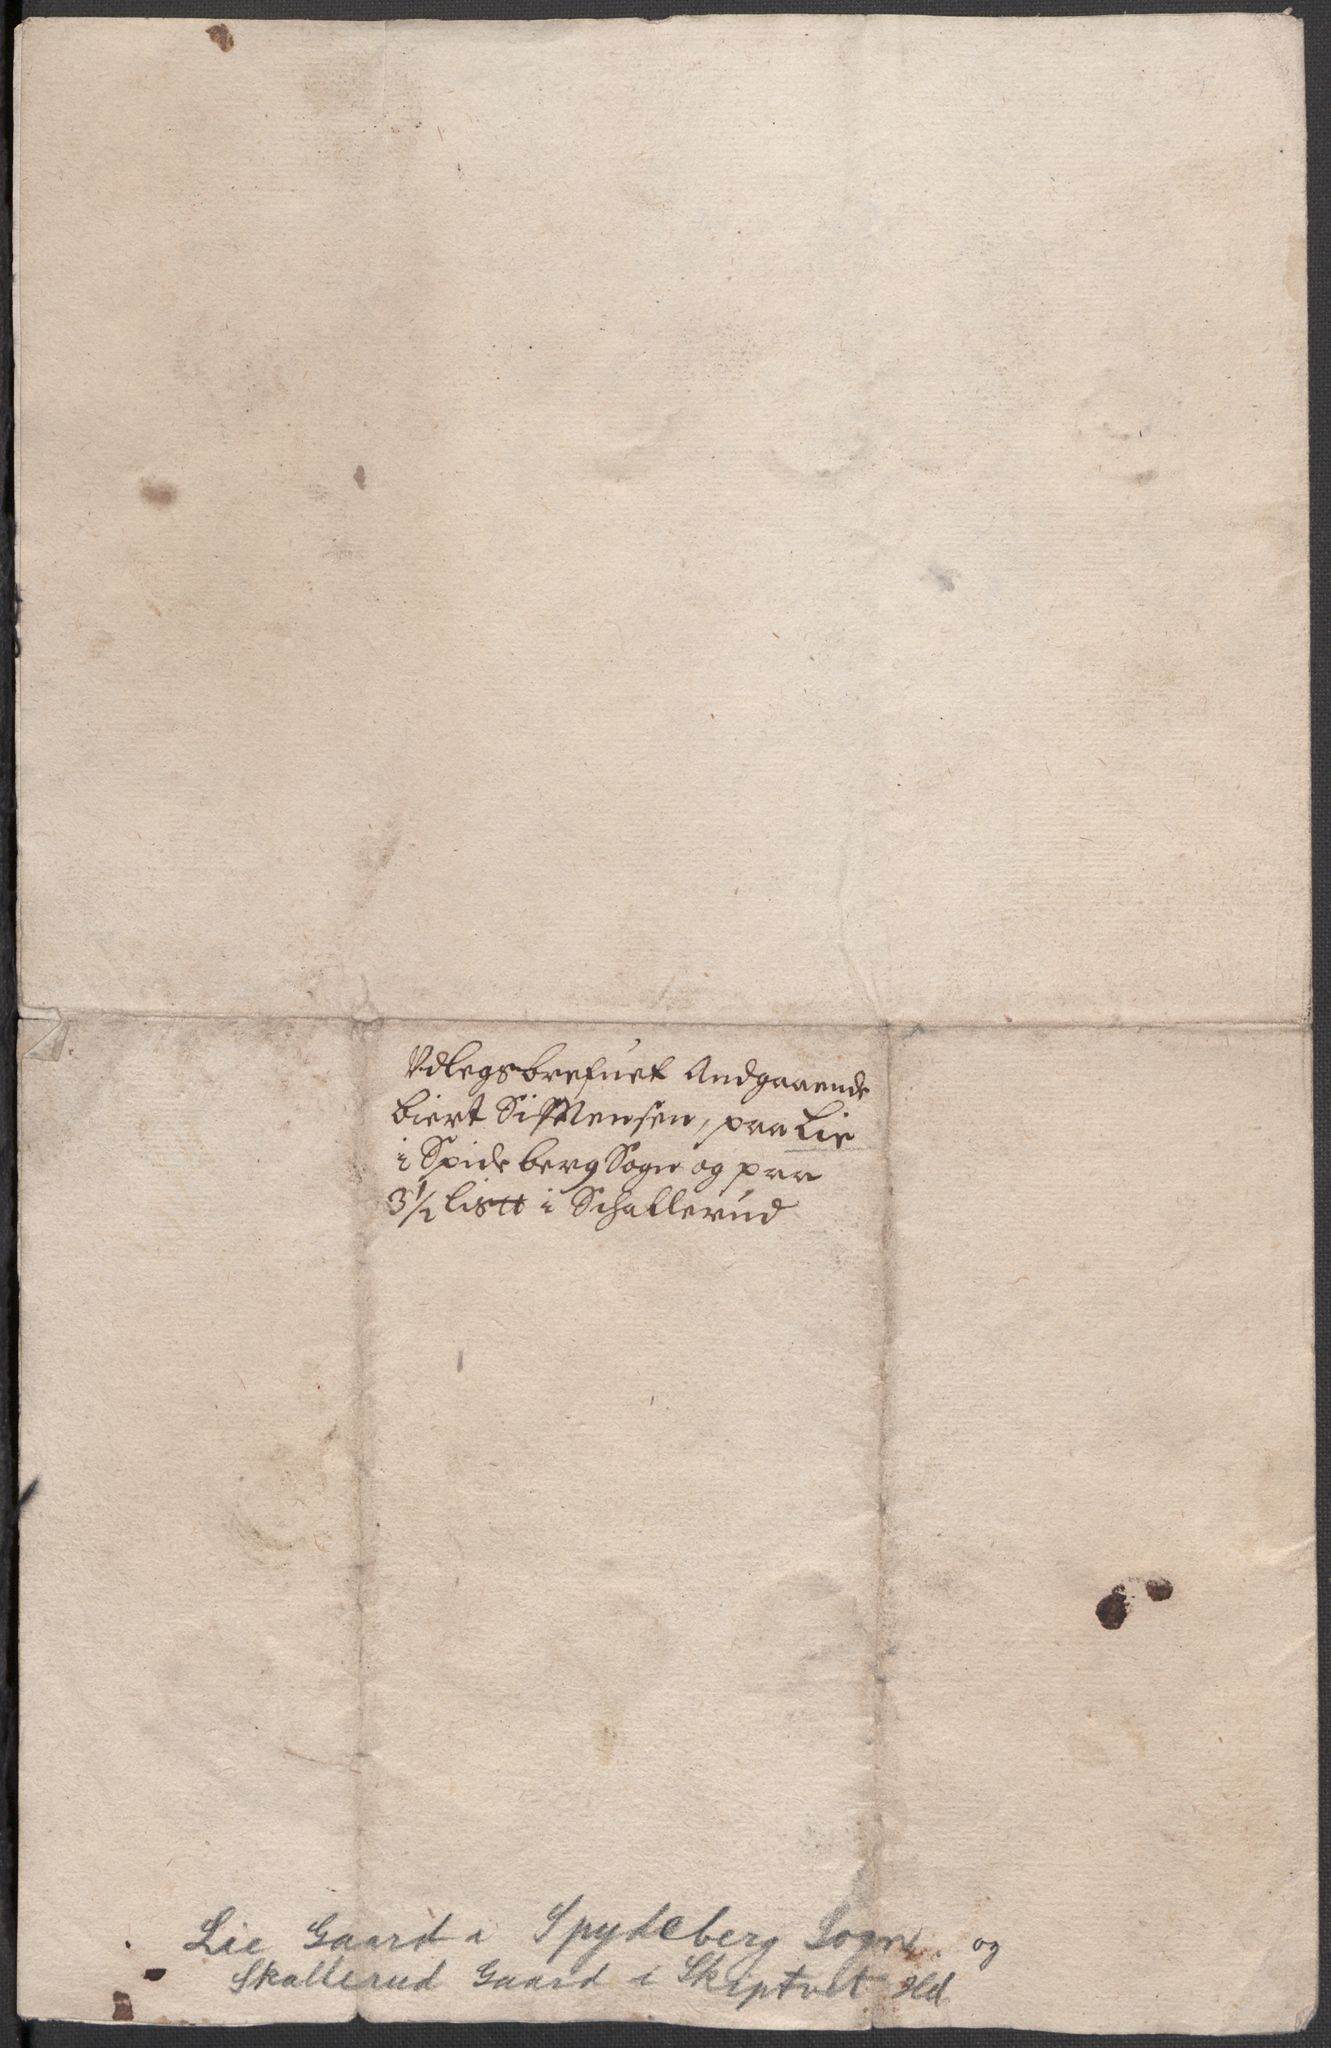 Vdlegsbrefuet Andgaaende
biert Simensen, paa Lie
i Spideberg Sogn og paa
3 1/2 lis℔ i Schallerud
Lie Gaard i Spydeberg Sogn og
Skallerud Gaard i Skiptvet Hd